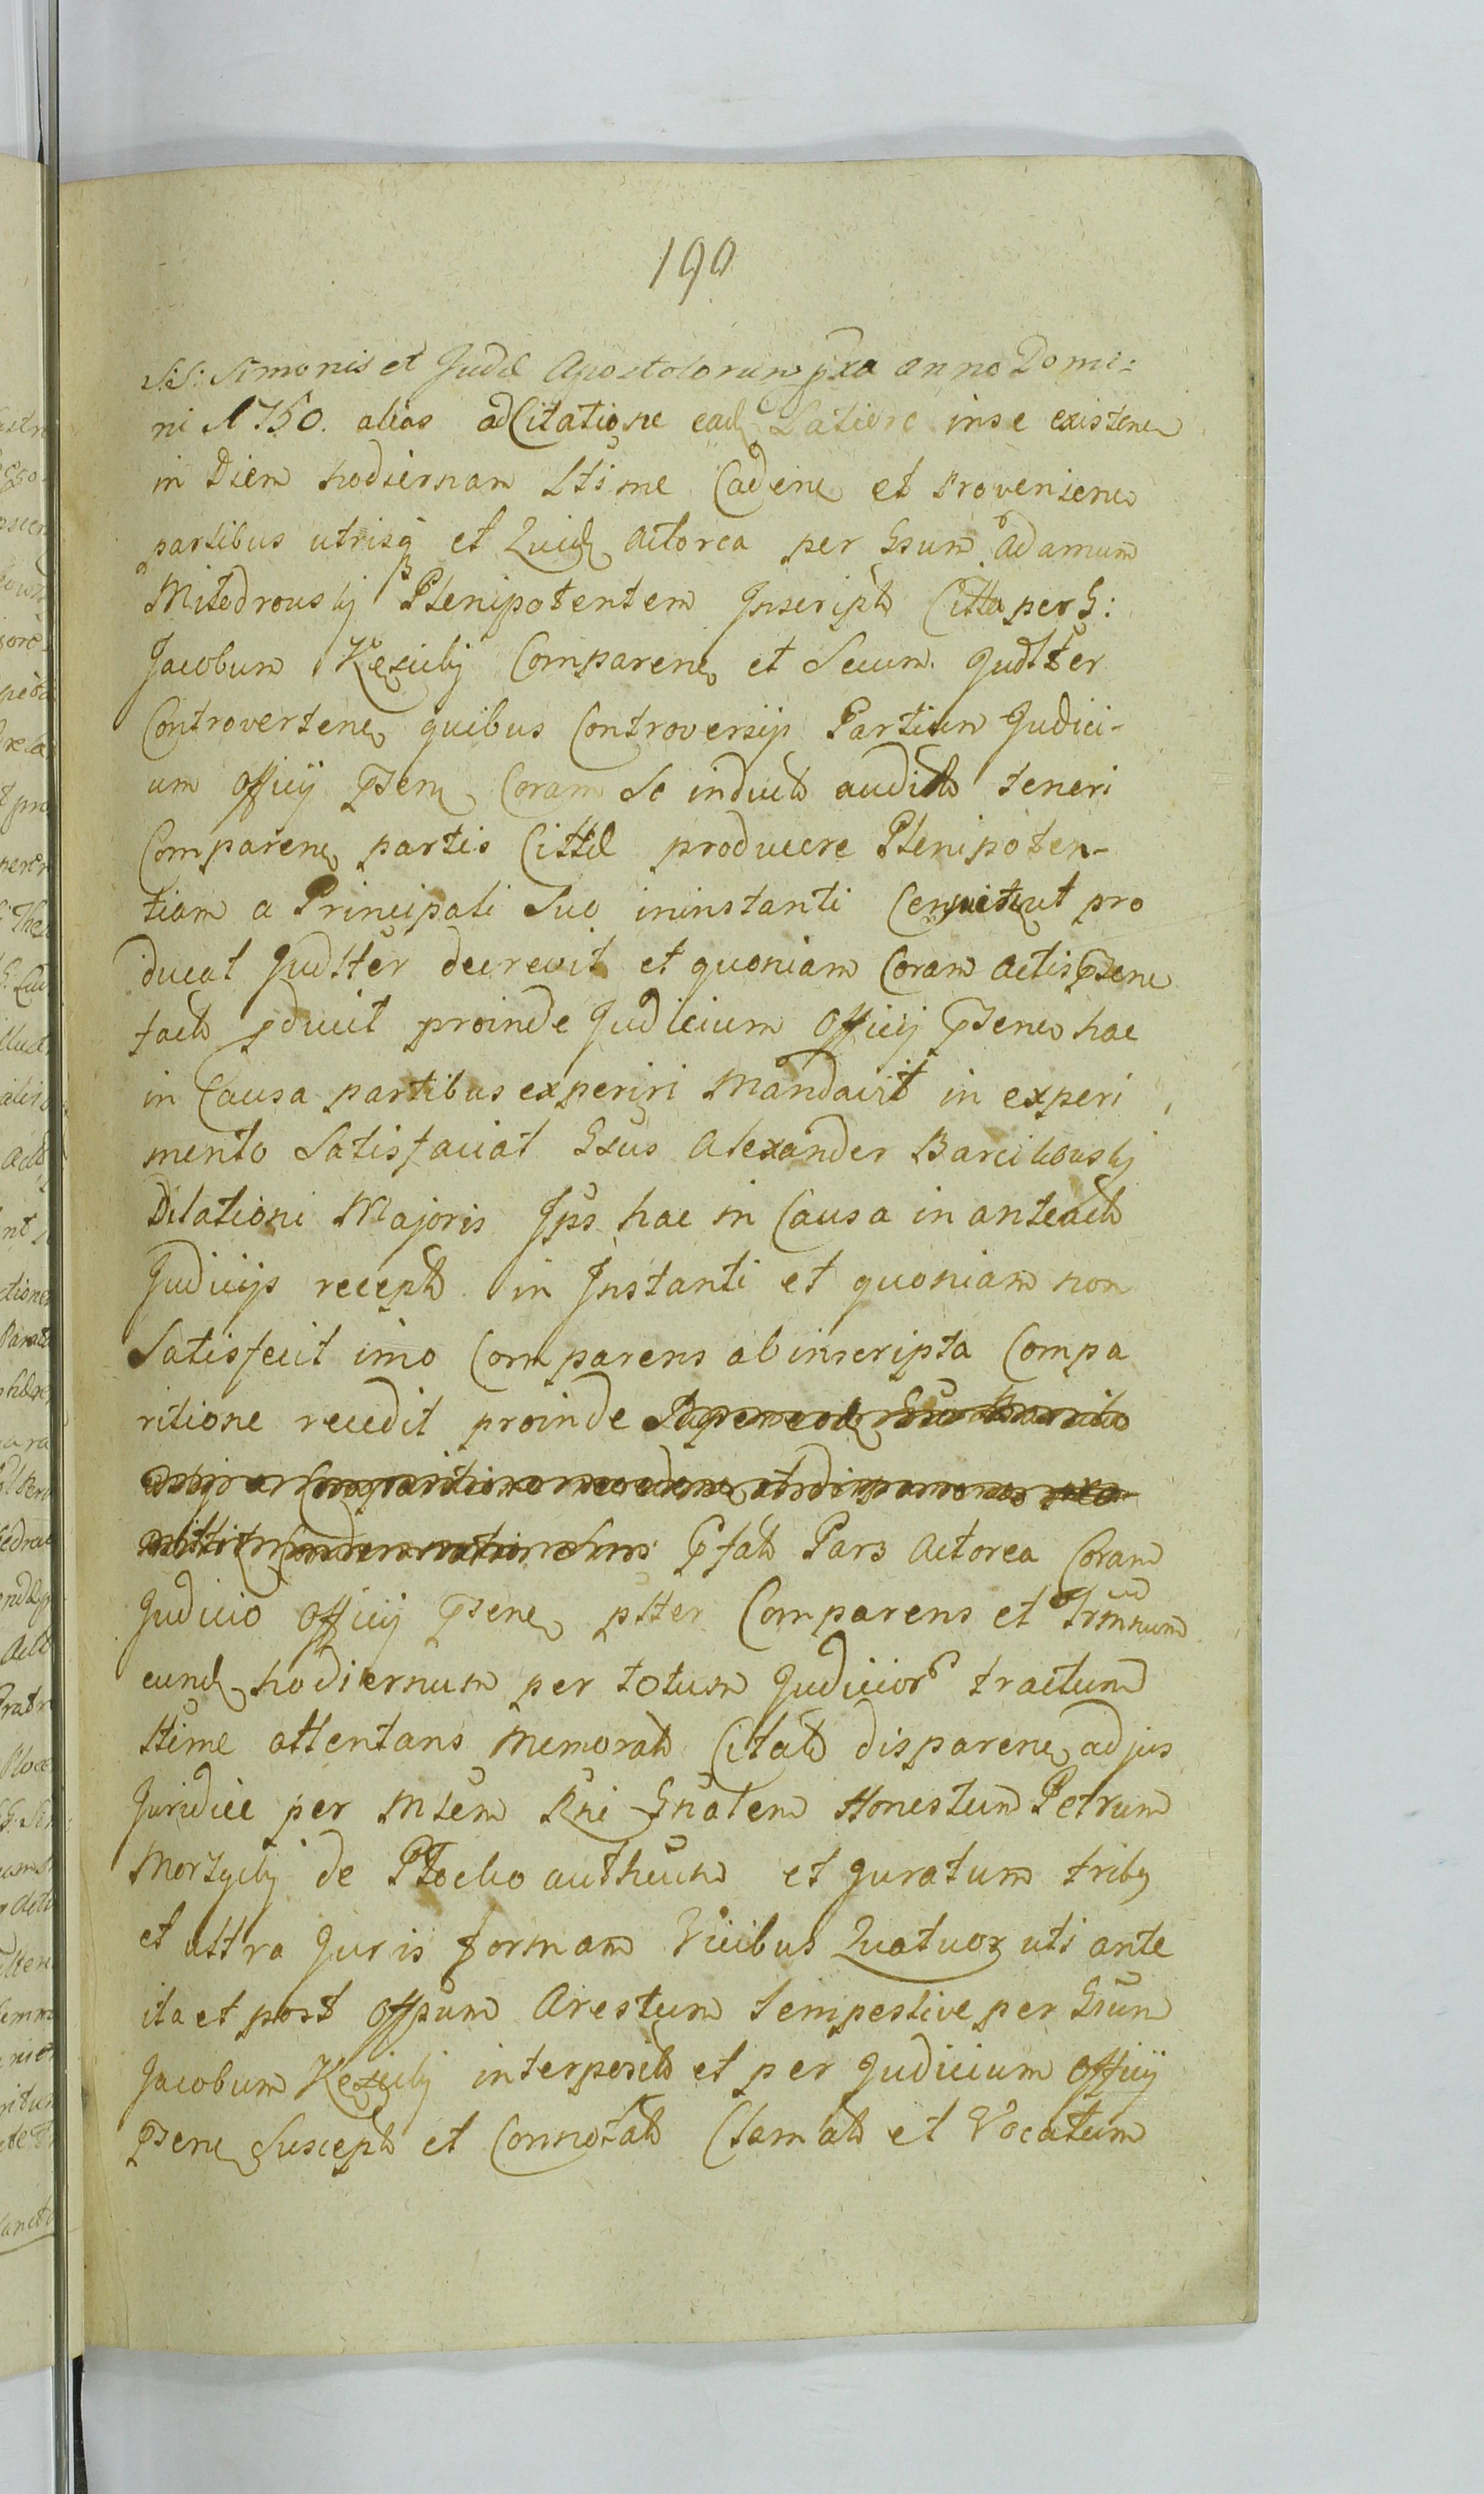 190
SS: Simonis et Judæ Apostolorum pxa anno Domi:
ni 1750. alias ad Citatione ead Latiore in se existen
in Diem hodiernam Ltime Caden et Provenien
partibus utrisq et Quid Actorea per Gsum Adamum
Plenipotentem Inscript Citta per G:
Jacobum Comparen et Secum Judtter
Controverten quibus Controversijs Partium Judici-
um Officij Psen Coram Se induct audit teneri
Comparen partis Cittæ producere Plenipoten-
tiam a Principali Suo in instanti ut pro
ducat Judtter decrevit et quoniam Coram Actis Psen
fact pducit proinde Judicium Officij Psen hac
in Causa partibus experiri Mandavit in experi
mento Satisfaciat Gsus Alexander
Dilationi Majoris Jps hac in Causa in anteact
Judicijs recept in Instanti et quoniam non
Satisfecit imo Comparens ab inscripta Compa
ritione recedit proinde
Pfat Pars Actorea Coram
Judicio Officij Psen pltter Comparens et Trmnum
eund hodiernum per totum Judicior tractum
ltime attentans Memorat Citat disparen ad jus
Juridice per Msem Rni Gnalem Honestum Petrum
de Plocko authcum et Juratum trib9
et ultra Juris formam Vicibus Quatuor uti ante
ita et post Offsum Arestum tempestive per Gsum
Jacobum interposit et per Judicium Officij
Psen Suscept et Connotat Clamat et Vocatum